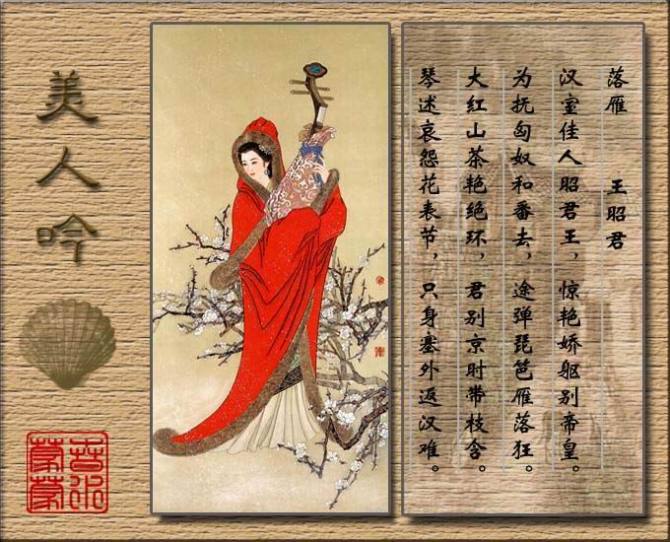 美人吟
落雁 王昭君
汉室佳人昭君王，惊艳娇躯别帝皇。
为抚匈奴和番去，途弹琵琶雁落狂。
大红山茶艳绝环，君别京时带枝含。
琴述哀怨花表节，只身塞外返汉难。